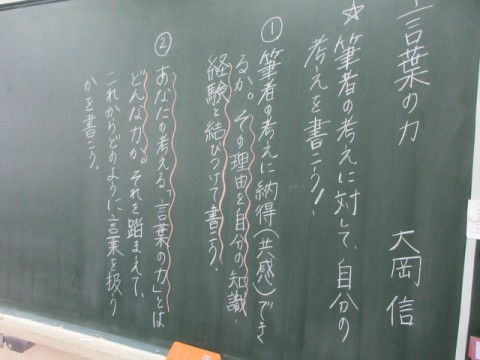 言葉の力 大岡信
☆筆者の考えに対して、自分の
考えを書こう！
①筆者の考えに納得(共感)でき
るか。その理由を自分の知識・
経験と結びつけて書こう。
②あなたの考える、「言葉の力」とは
どんな力か。それを踏まえて、
これからどのように言葉を扱う
かを書こう。